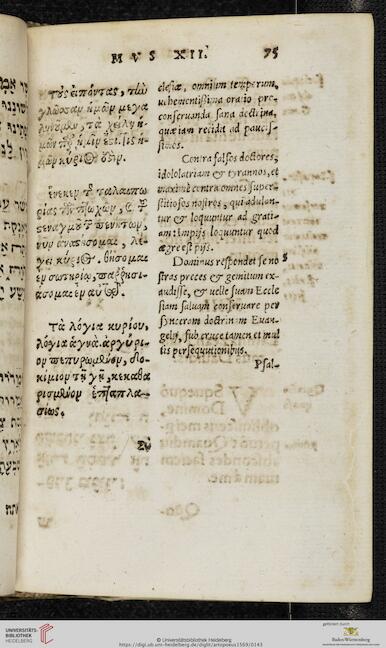 MVS XII. 75
Τοὺς εἰπόντας, τὴν
γλῶσσαν ἡμῶν μεγα
λυνοῦμεν, τὰ χείλη ἡ-
μῶν παρ' ἡμῖν ἐστι, τίς ἡ-
μῶν κύριος ἐστιν.
ἕνεκεν τῆς ταλαιπω
ρίας τῶν πτωχῶν, καὶ τοῦ
στεναγμοῦ τῶν πενήτων,
νῦν ἀναστήσομαι, λέ-
γει κύριος, θήσομαι
ἐν σωτηρίῳ, παῤῥησι-
άσομαι ἐν αὐτῷ.
Τὰ λόγια κυρίου,
λόγια ἁγνὰ. ἀργύρι-
ον πεπυρωμένον, δο-
κίμιον τῇ γῇ, κεκαθα
ρισμένον ἑπταπλα-
σίως.
Σὺ
clesiæ, omnium temporum,
uehementissima oratio pro
conseruanda sana doctrina,
quæ iam recidit ad paucis-
simos.
Contra falsos doctores,
idololatriam & tyrannos, et
maximè contra omnes super-
stitiosos nostros, qui adulan-
tur & loquuntur ad grati-
am impijs loquuntur quod
ægre est pijs.
Dominus respondet se no
stras preces & gemitum ex-
audisse, & uelle suam Eccle
siam saluam conseruare per
synceram doctrinam Euan-
gelij, sub cruce tamen et mul
tis persequutionibus.
Psal-
UNIVERSITÄTS-
BIBLIOTHEK
HEIDELBERG
© Universitätsbibliothek Heidelberg
https://digi.ub.uni-heidelberg.de/diglit/artopoeus1569/0143
gefördert durch
Baden-Württemberg